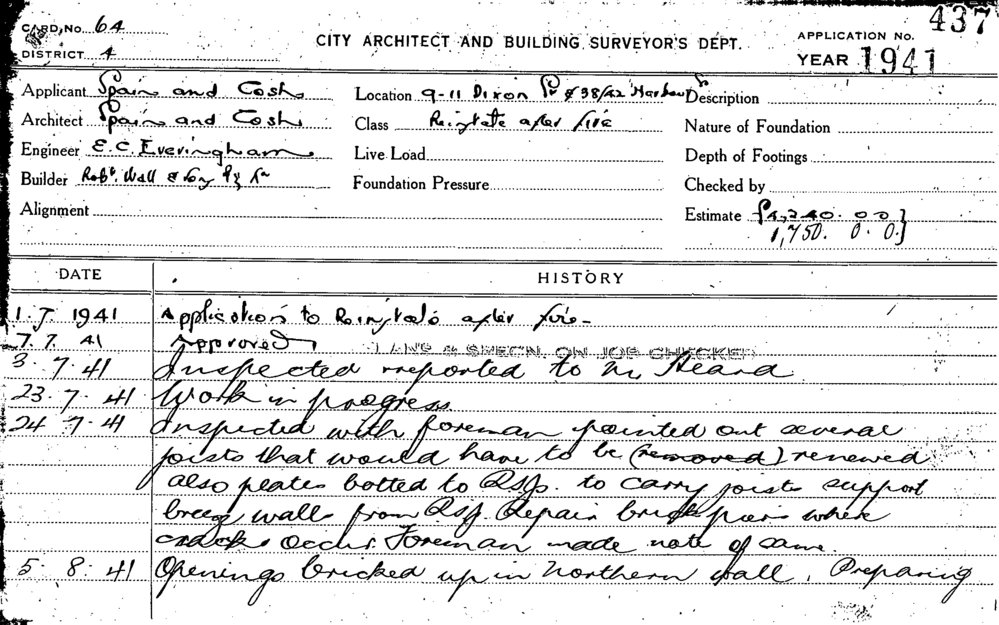 CARD, No. 64
DISTRICT 4
CITY ARCHITECT AND BUILDING SURVEYOR'S DEPT.
APPLICATION No. 437
YEAR 1941
Applicant Spain and Cosh
Location 9-11 Dixon St & 38/42 Harbour St
Description
Architect Spain and Cosh
Class Reinstate after fire
Nature of Foundation
Engineer E. C. Everingham
Live Load
Depth of Footings
Builder Robt. Wall & Son Pty
Foundation Pressure
Checked by
Alignment
Estimate 0 0 }
1,750. 0. 0. }
DATE HISTORY
1. 7. 1941 Application to Reinstate after fire-
7. 7. 41 Approved PLANS & SPECN. ON JOB CHECKED
3 7. 41 Inspected reported to Mr Heard
23. 7. 41 Work in progress
24 7. 41 Inspected with foreman pointed out several
joists that would have to be (removed) renewed
also plates bolted to RSJs. to carry joists support
breeze walls from RSJ. Repair brick piers where
cracks occur. Foreman made note of same.
5. 8. 41 Openings bricked up in Northern wall. Preparing